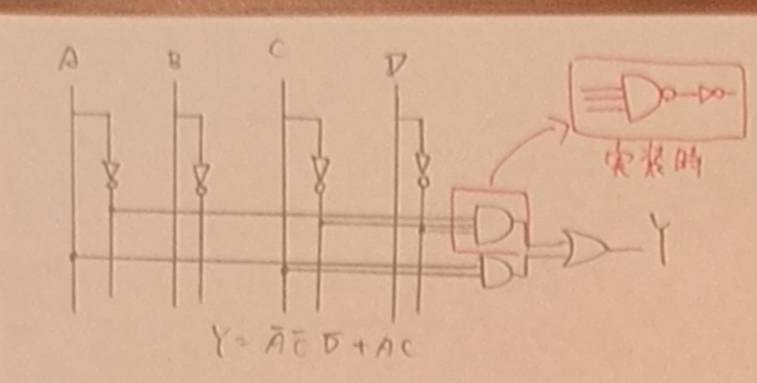 A B C D
実装時
Y
Y = A̅ C̅ D̅ + AC